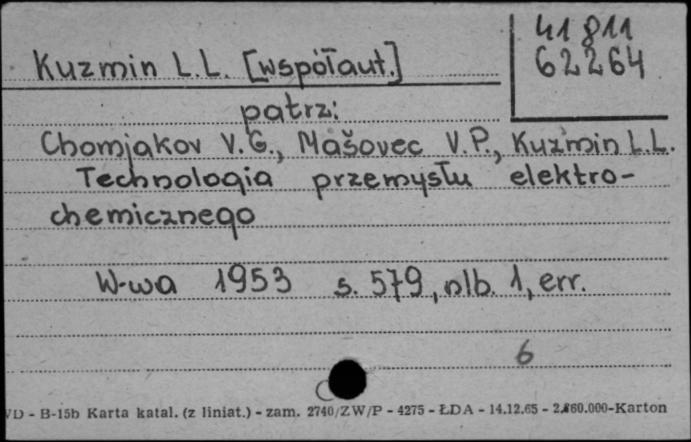 41811
Kuzmin L.L. [współaut.]
62264
patrz:
Chomjakov V.G., Mašovec V.P., Kuźmin L.L.
Technologia przemysłu elektro-
chemicznego
W-wa 1953 s. 579, nlb. 1, err.
6
B-15b Karta katal. (z liniat.) - zam. 2740/ZW/P - 4275 - ŁDA - 14.12.65 - -Karton